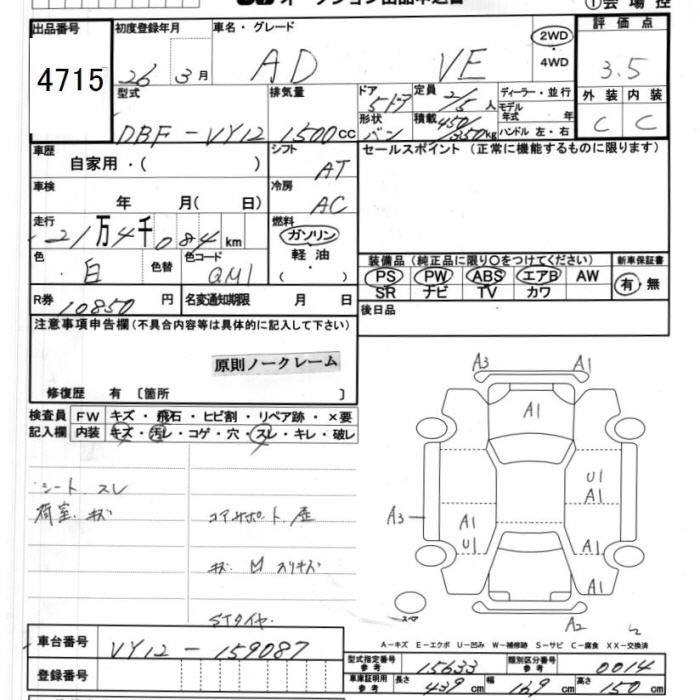 オークション出品申込書 ①会場控
出品番号 4715
初度登録年月 26年 3月
車名・グレード AD VE
2WD・4WD
評価点 3.5
外装 内装
C C
型式 DBF-VY12
排気量 1500cc
ドア 5ドア
定員 2/5人
形状 バン
積載 450/350kg
ディーラー・並行
モデル年式 年
ハンドル 左・右
車歴 自家用・( )
シフト AT
セールスポイント（正常に機能するものに限ります）
車検 年 月( 日)
冷房 AC
走行 21万4千084km
燃料 ガソリン・軽油・( )
色 白 色替
色コード QM1
装備品（純正品に限り○をつけてください）
PS PW ABS エアB AW
SR ナビ TV カワ
新車保証書 有・無
R券 10850円
名変通知期限 月 日
後日品
注意事項申告欄(不具合内容等は具体的に記入して下さい)
原則ノークレーム
修復歴 有 〔箇所 〕
検査員記入欄
FW キズ・飛石・ヒビ割・リペア跡・×要
内装 キズ・汚レ・コゲ・穴・スレ・キレ・破レ
シート、スレ
荷室 キズ
コアサポート
キズ 凹 スリキズ
STタイヤ
A3 A1
A1
U1
A1
A3
A1
U1
A1
A1
A2
スペ
A-キズ E-エクボ U-凹み W-補修跡 S-サビ C-腐食 XX-交換済
車台番号 VY12-159087
登録番号
型式指定番号 参考 15633
類別区分番号 参考 0014
車庫証明用 参考 長さ 439cm 幅 169cm 高さ 150cm